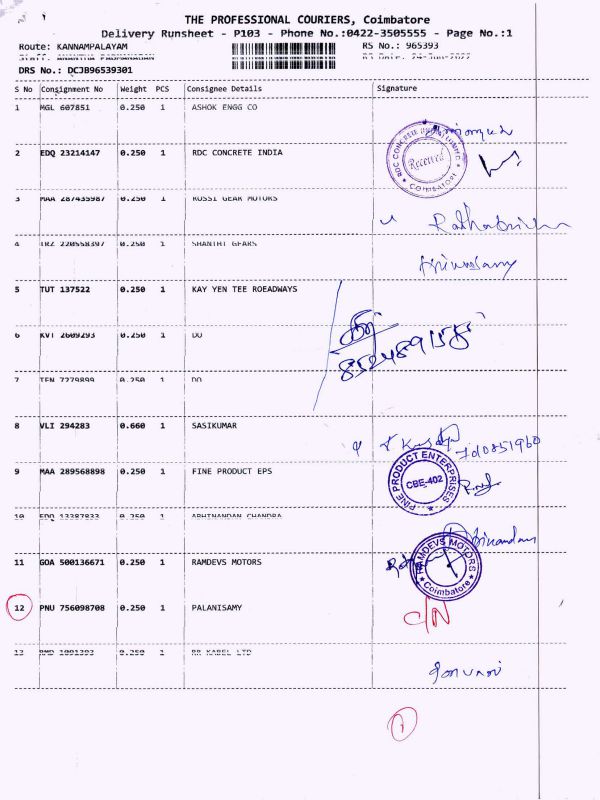 THE PROFESSIONAL COURIERS, Coimbatore
Delivery Runsheet - P103 - Phone No.:0422-3505555 - Page No.:1
Route: KANNAMPALAYAM RS No.: 965393
DRS No.: DCJB96539301
S No Consignment No Weight PCS Consignee Details Signature
1 MGL 607851 0.250 1 ASHOK ENGG CO
2 EDQ 23214147 0.250 1 RDC CONCRETE INDIA
Received
COIMBATORE
3 MAA 287435987 0.250 1 ROSSI GEAR MOTORS
4 TRZ 220558397 0.250 1 SHANTHI GEARS
5 TUT 137522 0.250 1 KAY YEN TEE ROEADWAYS
6 KVT 2609293 0.250 1 DO
7 TEN 7279899 0.250 1 DO
8 VLI 294283 0.660 1 SASIKUMAR
9 MAA 289568898 0.250 1 FINE PRODUCT EPS
PINE PRODUCT ENTERPRISES
CBE-402
10 EDQ 13387833 0.250 1 ABHINANDAN CHANDRA
11 GOA 500136671 0.250 1 RAMDEVS MOTORS
RAMDEVS MOTORS
Coimbatore
12 PNU 756098708 0.250 1 PALANISAMY
C/N
13 1091393 0.250 1 RR KABEL LTD
1